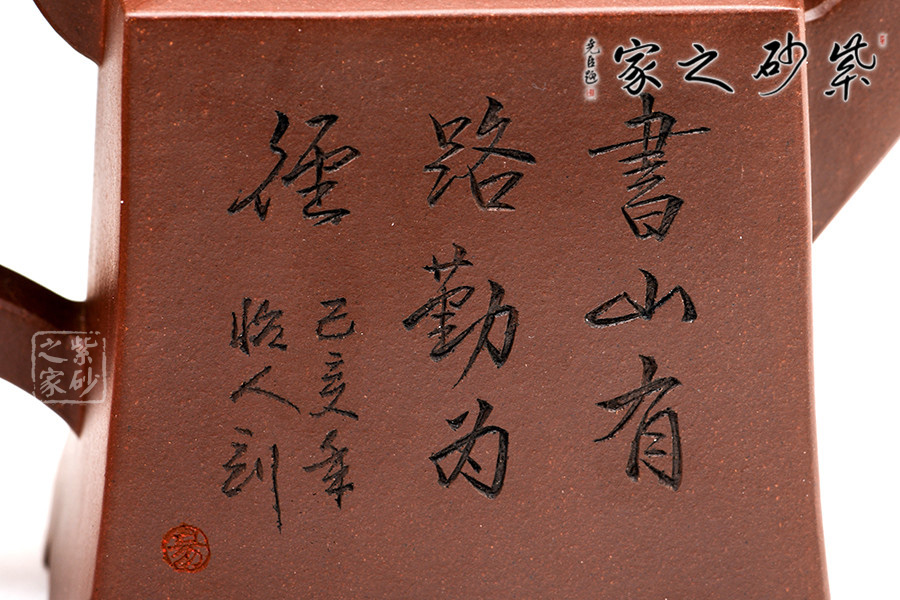 紫砂之家
書山有
路勤为
徑
己亥年
人刻
紫砂之家